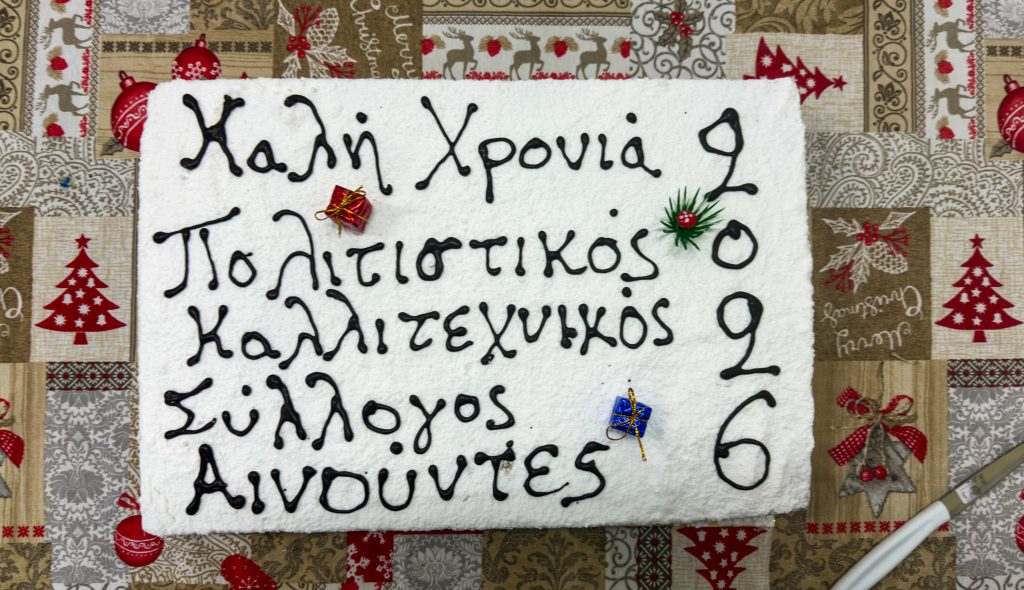 Καλή Χρονιά
Πολιτιστικός
Καλλιτεχνικός
Σύλλογος
Αινούντες
2
0
2
6
Merry Christmas
Merry Christmas